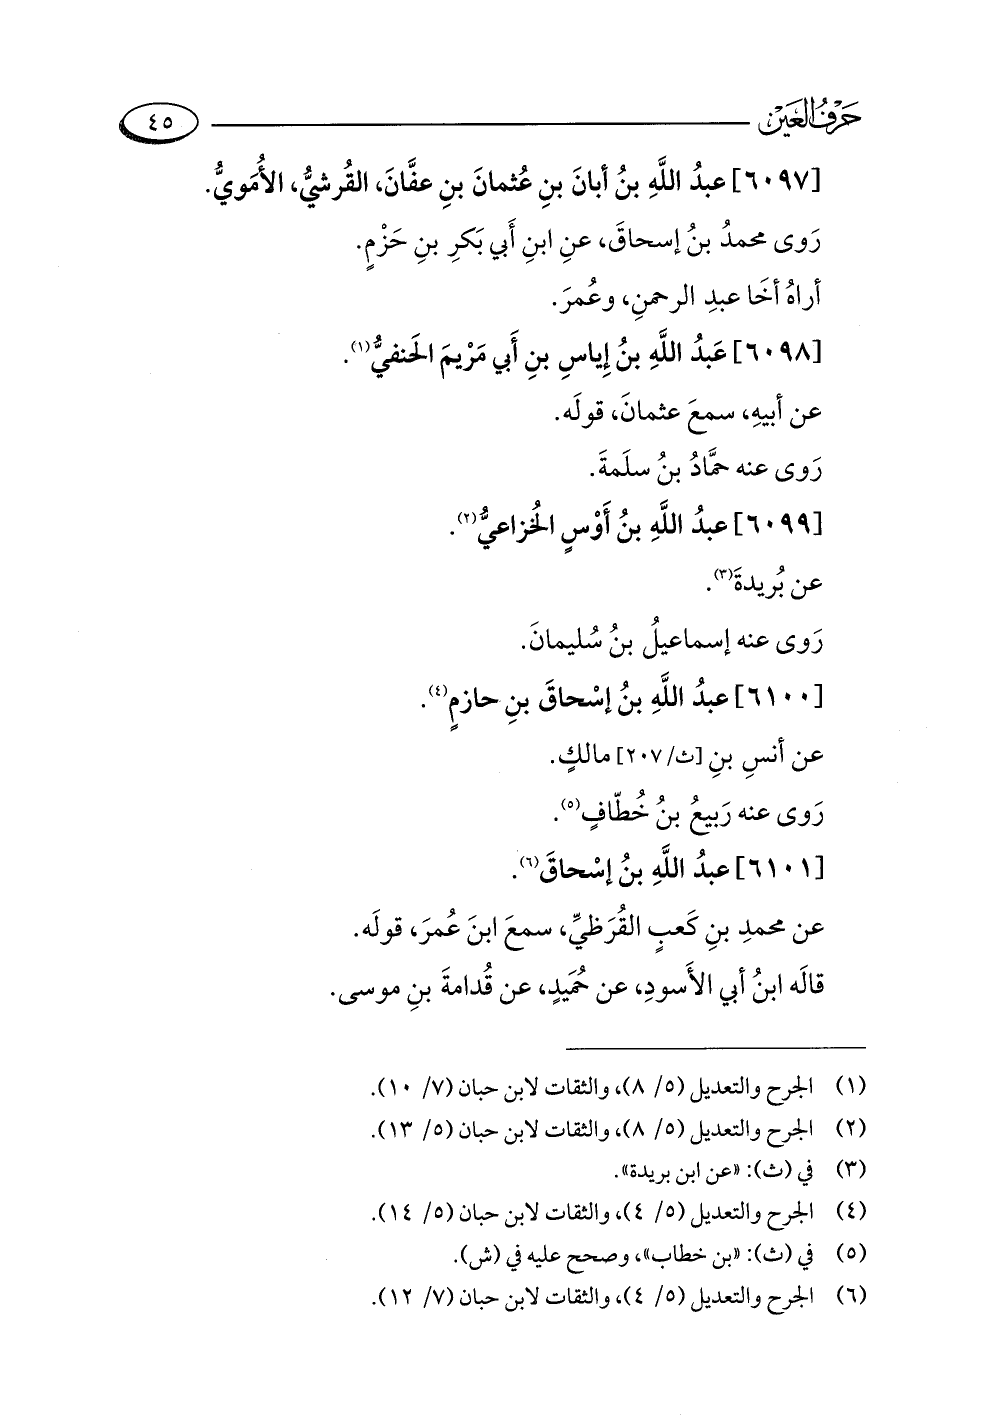 حَرْفُ العَيْن
٤٥
[٦٠٩٧] عبدُ اللَّهِ بنُ أبانَ بنِ عُثمانَ بنِ عفَّانَ، القُرشيُّ، الأُمَويُّ.
رَوى محمدُ بنُ إسحاقَ، عنِ ابنِ أَبي بَكرِ بنِ حَزْمٍ.
أراهُ أخَا عبدِ الرحمنِ، وعُمرَ.
[٦٠٩٨] عَبدُ اللَّهِ بنُ إياسِ بنِ أَبي مَرْيمَ الحَنفيُّ(١).
عن أبيهِ، سمعَ عثمانَ، قولَه.
رَوى عنه حمَّادُ بنُ سلَمةَ.
[٦٠٩٩] عبدُ اللَّهِ بنُ أَوْسٍ الخُزاعيُّ(٢).
عن بُريدةَ(٣).
رَوى عنه إسماعيلُ بنُ سُليمانَ.
[٦١٠٠] عبدُ اللَّهِ بنُ إسْحاقَ بنِ حازمٍ(٤).
عن أنسِ بنِ [ث/٢٠٧] مالكٍ.
رَوى عنه رَبيعُ بنُ خُطّافٍ(٥).
[٦١٠١] عبدُ اللَّهِ بنُ إسْحاقَ(٦).
عن محمدِ بنِ كَعبٍ القُرَظيِّ، سمعَ ابنَ عُمرَ، قولَه.
قالَه ابنُ أبي الأَسودِ، عن حُمَيدٍ، عن قُدامةَ بنِ موسى.
(١) الجرح والتعديل (٥/ ٨)، والثقات لابن حبان (٧/ ١٠).
(٢) الجرح والتعديل (٥/ ٨)، والثقات لابن حبان (٥/ ١٣).
(٣) في (ث): «عن ابن بريدة».
(٤) الجرح والتعديل (٥/ ٤)، والثقات لابن حبان (٥/ ١٤).
(٥) في (ث): «بن خطاب»، وصحح عليه في (ش).
(٦) الجرح والتعديل (٥/ ٤)، والثقات لابن حبان (٧/ ١٢).